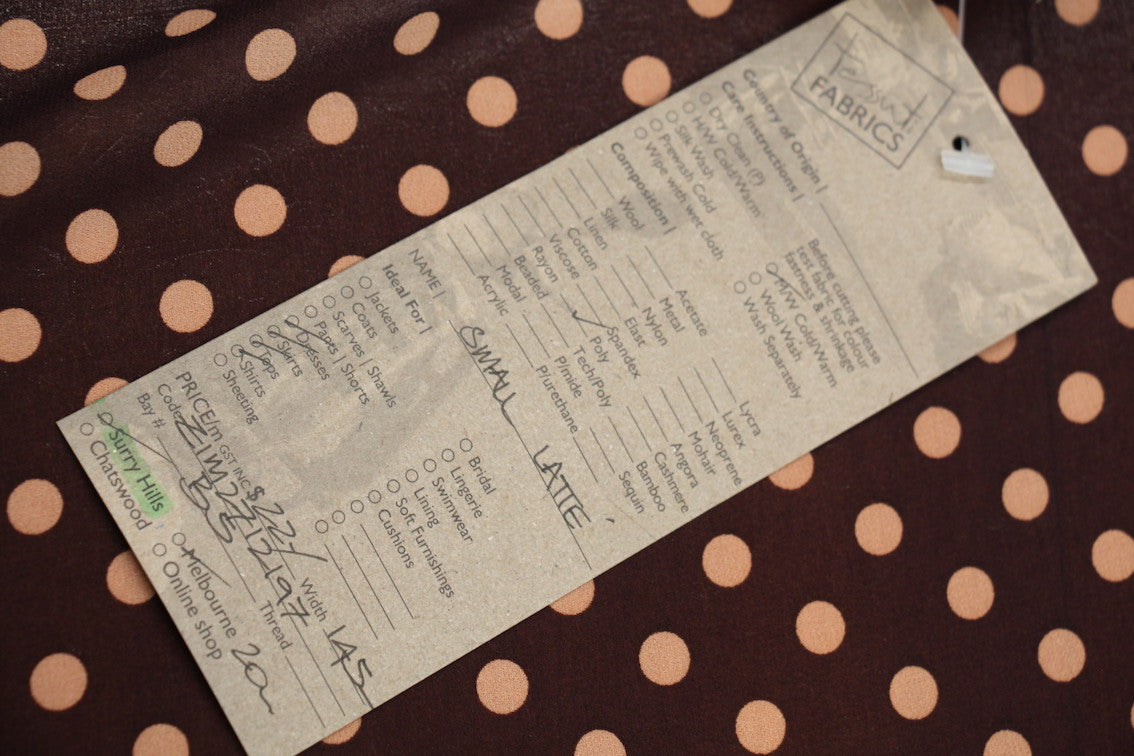 Tessuti
FABRICS
Country of Origin |
Care Instructions |
Dry Clean (P)
H/W Cold/Warm
Silk Wash
Prewash Cold
Wipe with wet cloth
Before cutting please
test fabric for colour
fastness & shrinkage
M/W Cold/Warm
Wool Wash
Wash Separately
Composition |
Wool
Silk
Linen
Cotton
Viscose
Rayon
Beaded
Modal
Acrylic
Acetate
Metal
Nylon
Elast
Spandex
Poly
Tech/Poly
P/mide
P/urethane
Lycra
Lurex
Neoprene
Mohair
Angora
Cashmere
Bamboo
Sequin
NAME | SMALL LATTE
Ideal For |
Jackets
Coats
Scarves | Shawls
Pants | Shorts
Dresses
Skirts
Tops
Shirts
Sheeting
Bridal
Lingerie
Swimwear
Lining
Soft Furnishings
Cushions
PRICE/m GST INC. $22/ Width 145
Code Thread
Bay #
Surry Hills
Chatswood
Melbourne
Online shop